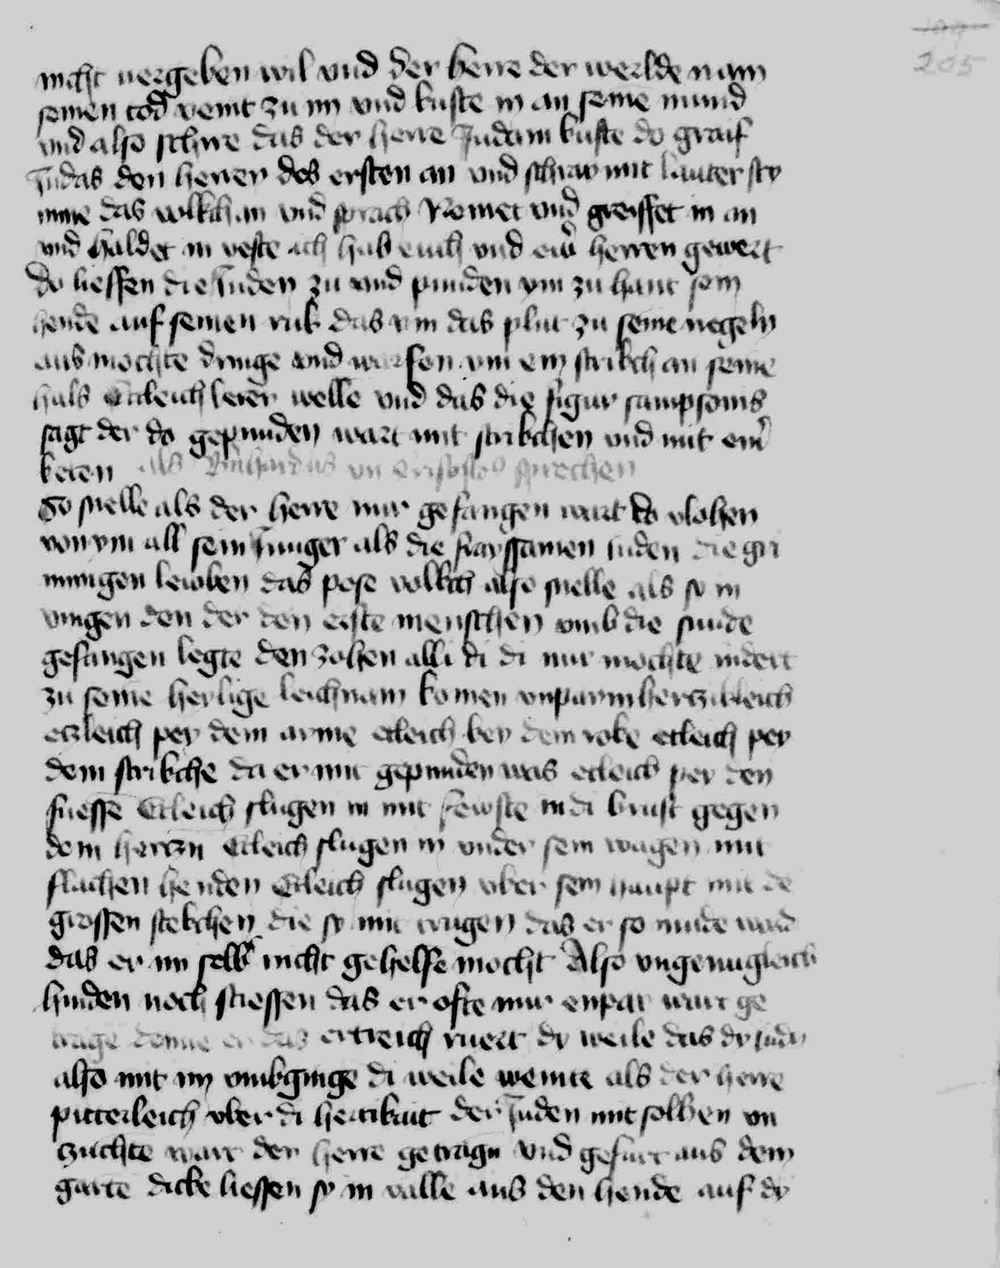 205
nicht vergeben wil vnd der herre der werlde nam
seinen tod veint zu im vnd kuste in an seine mund
vnd also schire das der herre Judam kuste do graif
Judas den herren des ersten an vnd schray mit lauter sty
mme das volkch an vnd sprach Nemet vnd greiffet in an
vnd haldet in veste ich hab euch vnd ew herren gewert
do lieffen die Juden zu vnd punden ym zu hant sein
hende auf seinen ruk das ym das plut zu seine negeln
aus mochte dringe vnd warfen ym ein strikch an seine
hals Etleich lerer welle vnd das die figur sampsonis
sagt der do gepunden wart mit strikchen vnd mit ein
keten als vn sprechen
So snelle als der herre nur gefangen wart do vlohen
von ym all sein Junger als die fraysamen iuden die gri
mmigen leioben das pose volkch also snelle als sy in
vingen den der den erste menschen vmb die sunde
gefangen legte den zohen alle di di nur mochte indert
zu seine heylige leichnam komen vnparmherczikleich
eczleich pey dem arme etleich bey dem roke etleich pey
dem strikche da er mit gepunden was etleich pey den
fuesse Etleich slugen in mit fewste in di brust gegen
dem herczn Etleich slugen in vnder sein wagen mit
flachen henden Etleich slugen vber sein haupt mit de
grossen stekchen die sy mit trugen das er so mude ward
das er im selb nicht gehelfe mocht Also vngenugleich
hinden noch stiessen das er ofte nur enpar wart ge
trage denne er das ertreich ruert dy weile das dy Judn
also mit im vmbginge di weile weinte als der herre
pitterleich vber di hertikait der Juden mit solhen vn
zuchte wart der herre getragn vnd gefurt aus dem
garte dicke liessen sy in valle aus den hende auf dy